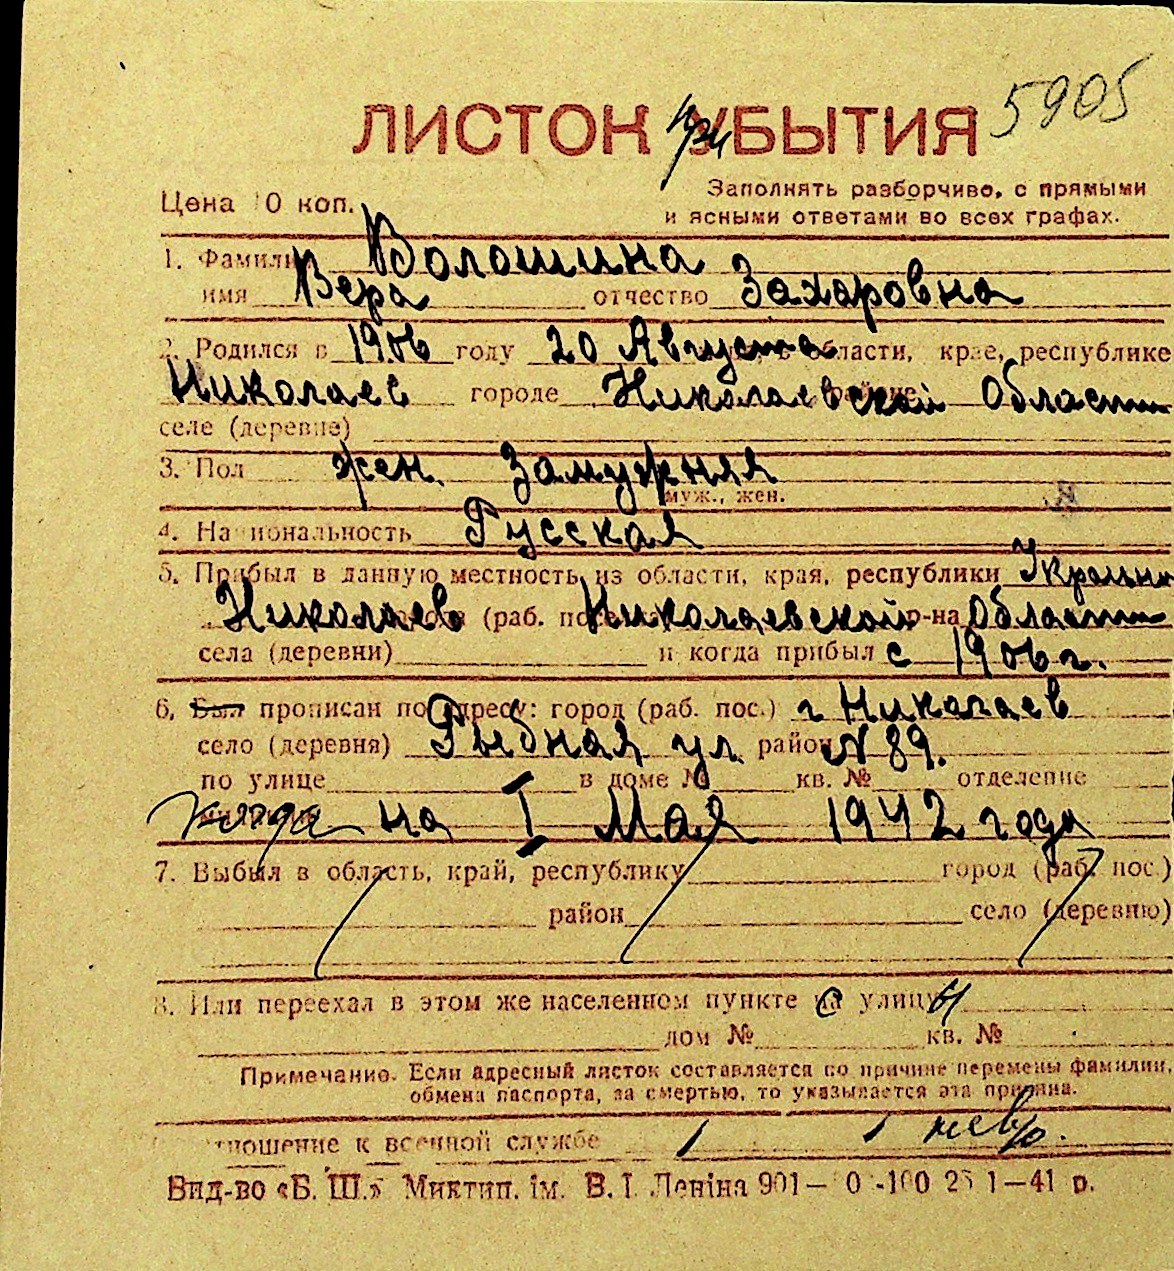 5905
ЛИСТОК при УБЫТИЯ
Заполнять разборчиво, с прямыми
Цена 10 коп.
и ясными ответами во всех графах.
1. Фамилия Волошина
имя Вера отчество Захаровна
2. Родился в 1906 году 20 Августа, в области, крае, республике
Николаев городе Николаевской районе Области
селе (деревне)
3. Пол жен. Замужняя
муж., жен.
4. Национальность Русская
5. Прибыл в данную местность из области, края, республики Украины
Николаев города (раб. поселка) Николаевской р-на Области
села (деревни) и когда прибыл с 1906 г.
6. Был прописан по адресу: город (раб. пос.) г Николаев
село (деревня) Рыбная ул. район N 89.
по улице в доме № кв. № отделение
когда на I Мая 1942 года
7. Выбыл в область, край, республику город (раб. пос.)
район село (деревню)
8. Или переехал в этом же населенном пункте с улицы
дом № кв. №
Примечание. Если адресный листок составляется по причине перемены фамилии,
обмена паспорта, за смертью, то указывается эта причина.
отношение к военной службе
Вид-во «Б. Ш.» Миктип. ім. В. І. Леніна 901— 0 -100 25 1—41 р.